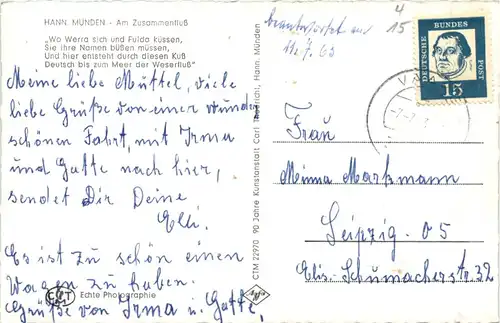 HANN. MÜNDEN - Am Zusammenfluß
"Wo Werra sich und Fulda küssen,
Sie ihre Namen büßen müssen,
Und hier entsteht durch diesen Kuß
Deutsch bis zum Meer der Weserfluß"
Meine liebe Müttel, viele
liebe Grüße von einer wunder
schönen Fahrt, mit Irma
und Gatte nach hier,
sendet Dir Deine
Elli.
Es ist zu schön einen
Wagen zu haben.
Grüße von Irma u. Gatte,
Echte Photographie
CTM 22970 90 Jahre Kunstanstalt Carl Hann. Münden
Agfa
beantwortet am
11.7.63
4
15
DEUTSCHE BUNDES POST
15
Frau
Minna Markmann
Leipzig. O5
Elis. Schumacherstr. 32